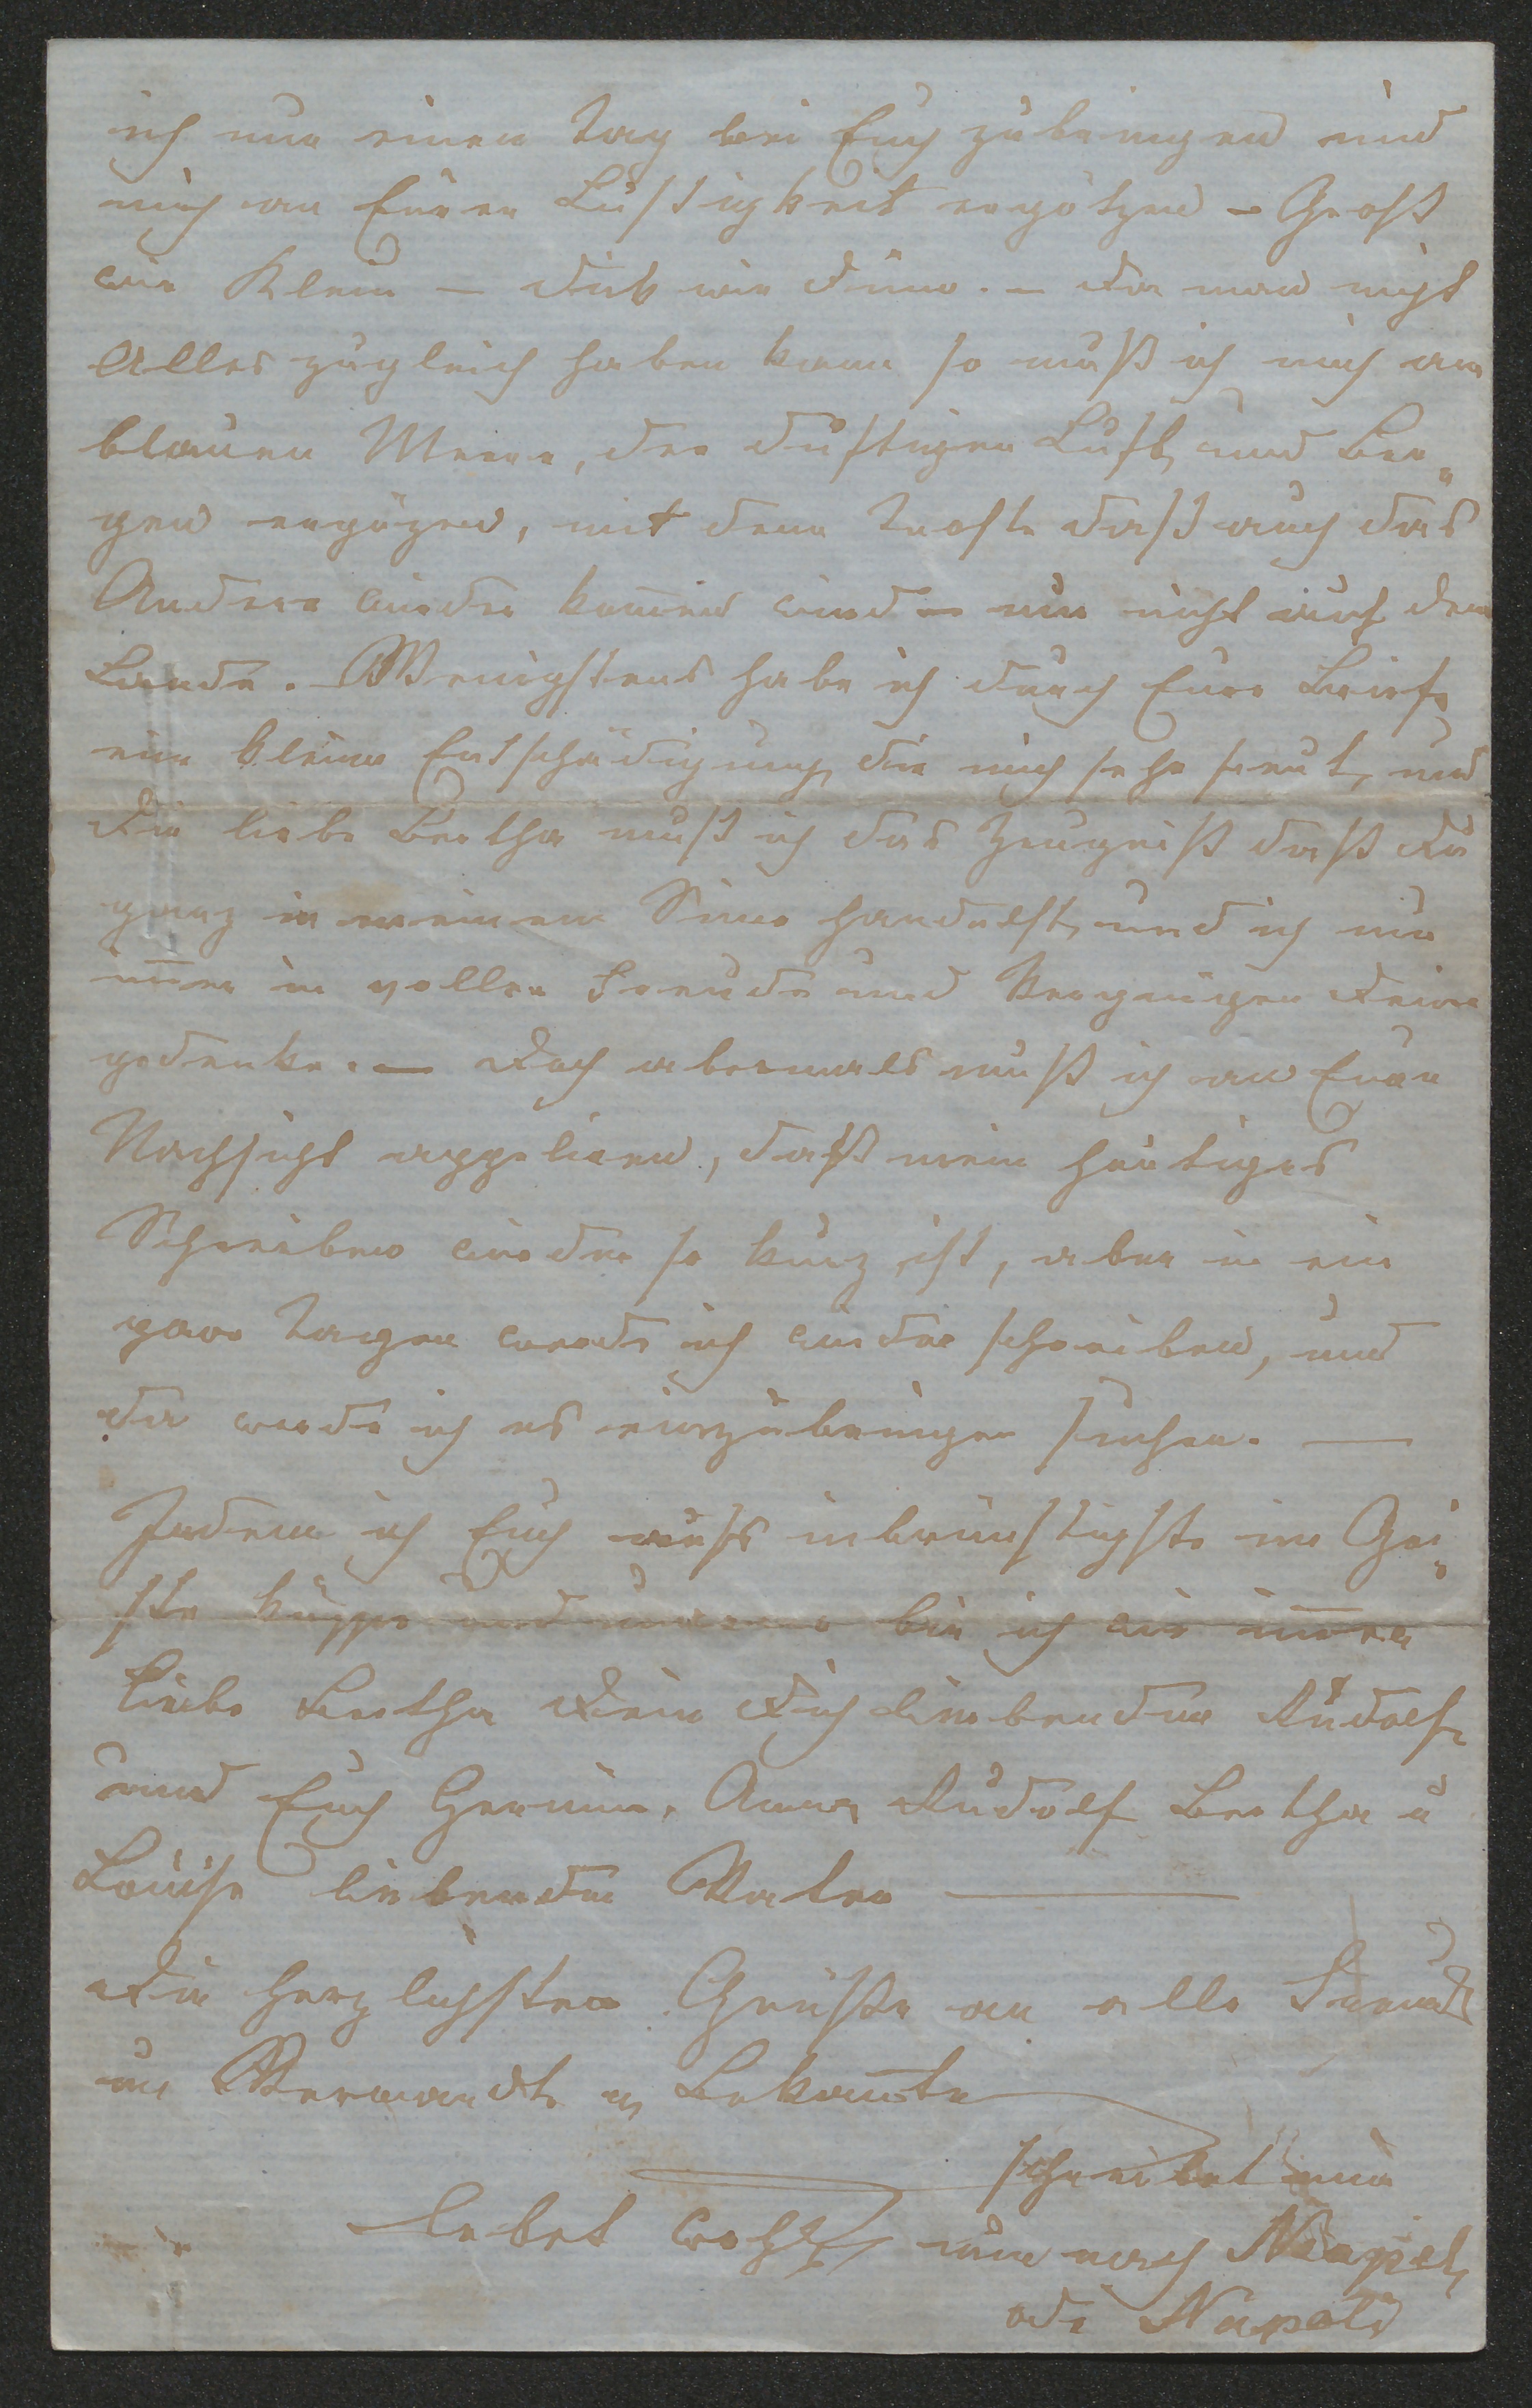 ich nur einen Tag bei Euch zubringen und
mich an Eurer Lustigkeit ergötzen – Groß
wie Klein – dick wie dünn. – Da man nicht
Alles zugleich haben kann so muß ich mich am
blauen Meere, der duftigen Luft und Ber„
gen ergözen, mit dem Troste daß auch das
Andere wieder kom̄en wird – nur nicht auf dem
Lande. – Wenigstens habe ich durch Eure Briefe
eine kleine Entschädigung, die mich sehr freut, und
Dir liebe Bertha muß ich das Zeugniß daß Du
ganz in meinem Sinne handelst, und ich nur
im̄er in voller Freude und Vergnügen Deiner
gedenke. – Doch abermals muß ich an Eure
Nachsicht appeliren, daß mein heutiges
Schreiben wieder so kurz ist, aber in ein
paar Tagen werde ich wieder schreiben, und
da werde ich es einzubringen suchen. —
Indem ich Euch aufs inbrünstigste im Gei„
ste küsse und umarme bin ich wie im̄er
liebe Bertha Dein Dich liebender Rudolf
und Euch Hermin, Anna Rudolf Bertha u
Louise liebender Vater —
Die herzlichsten Grüße an alle Freunde
an Verwandte u Bekan̄te
schreibet mir
Lebet wohl nun nach Neapel,
odi Napoli